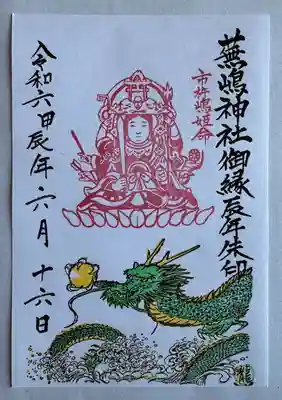 蕪嶋神社御縁辰年朱印
市杵嶋姫命
令和六甲辰年六月十六日